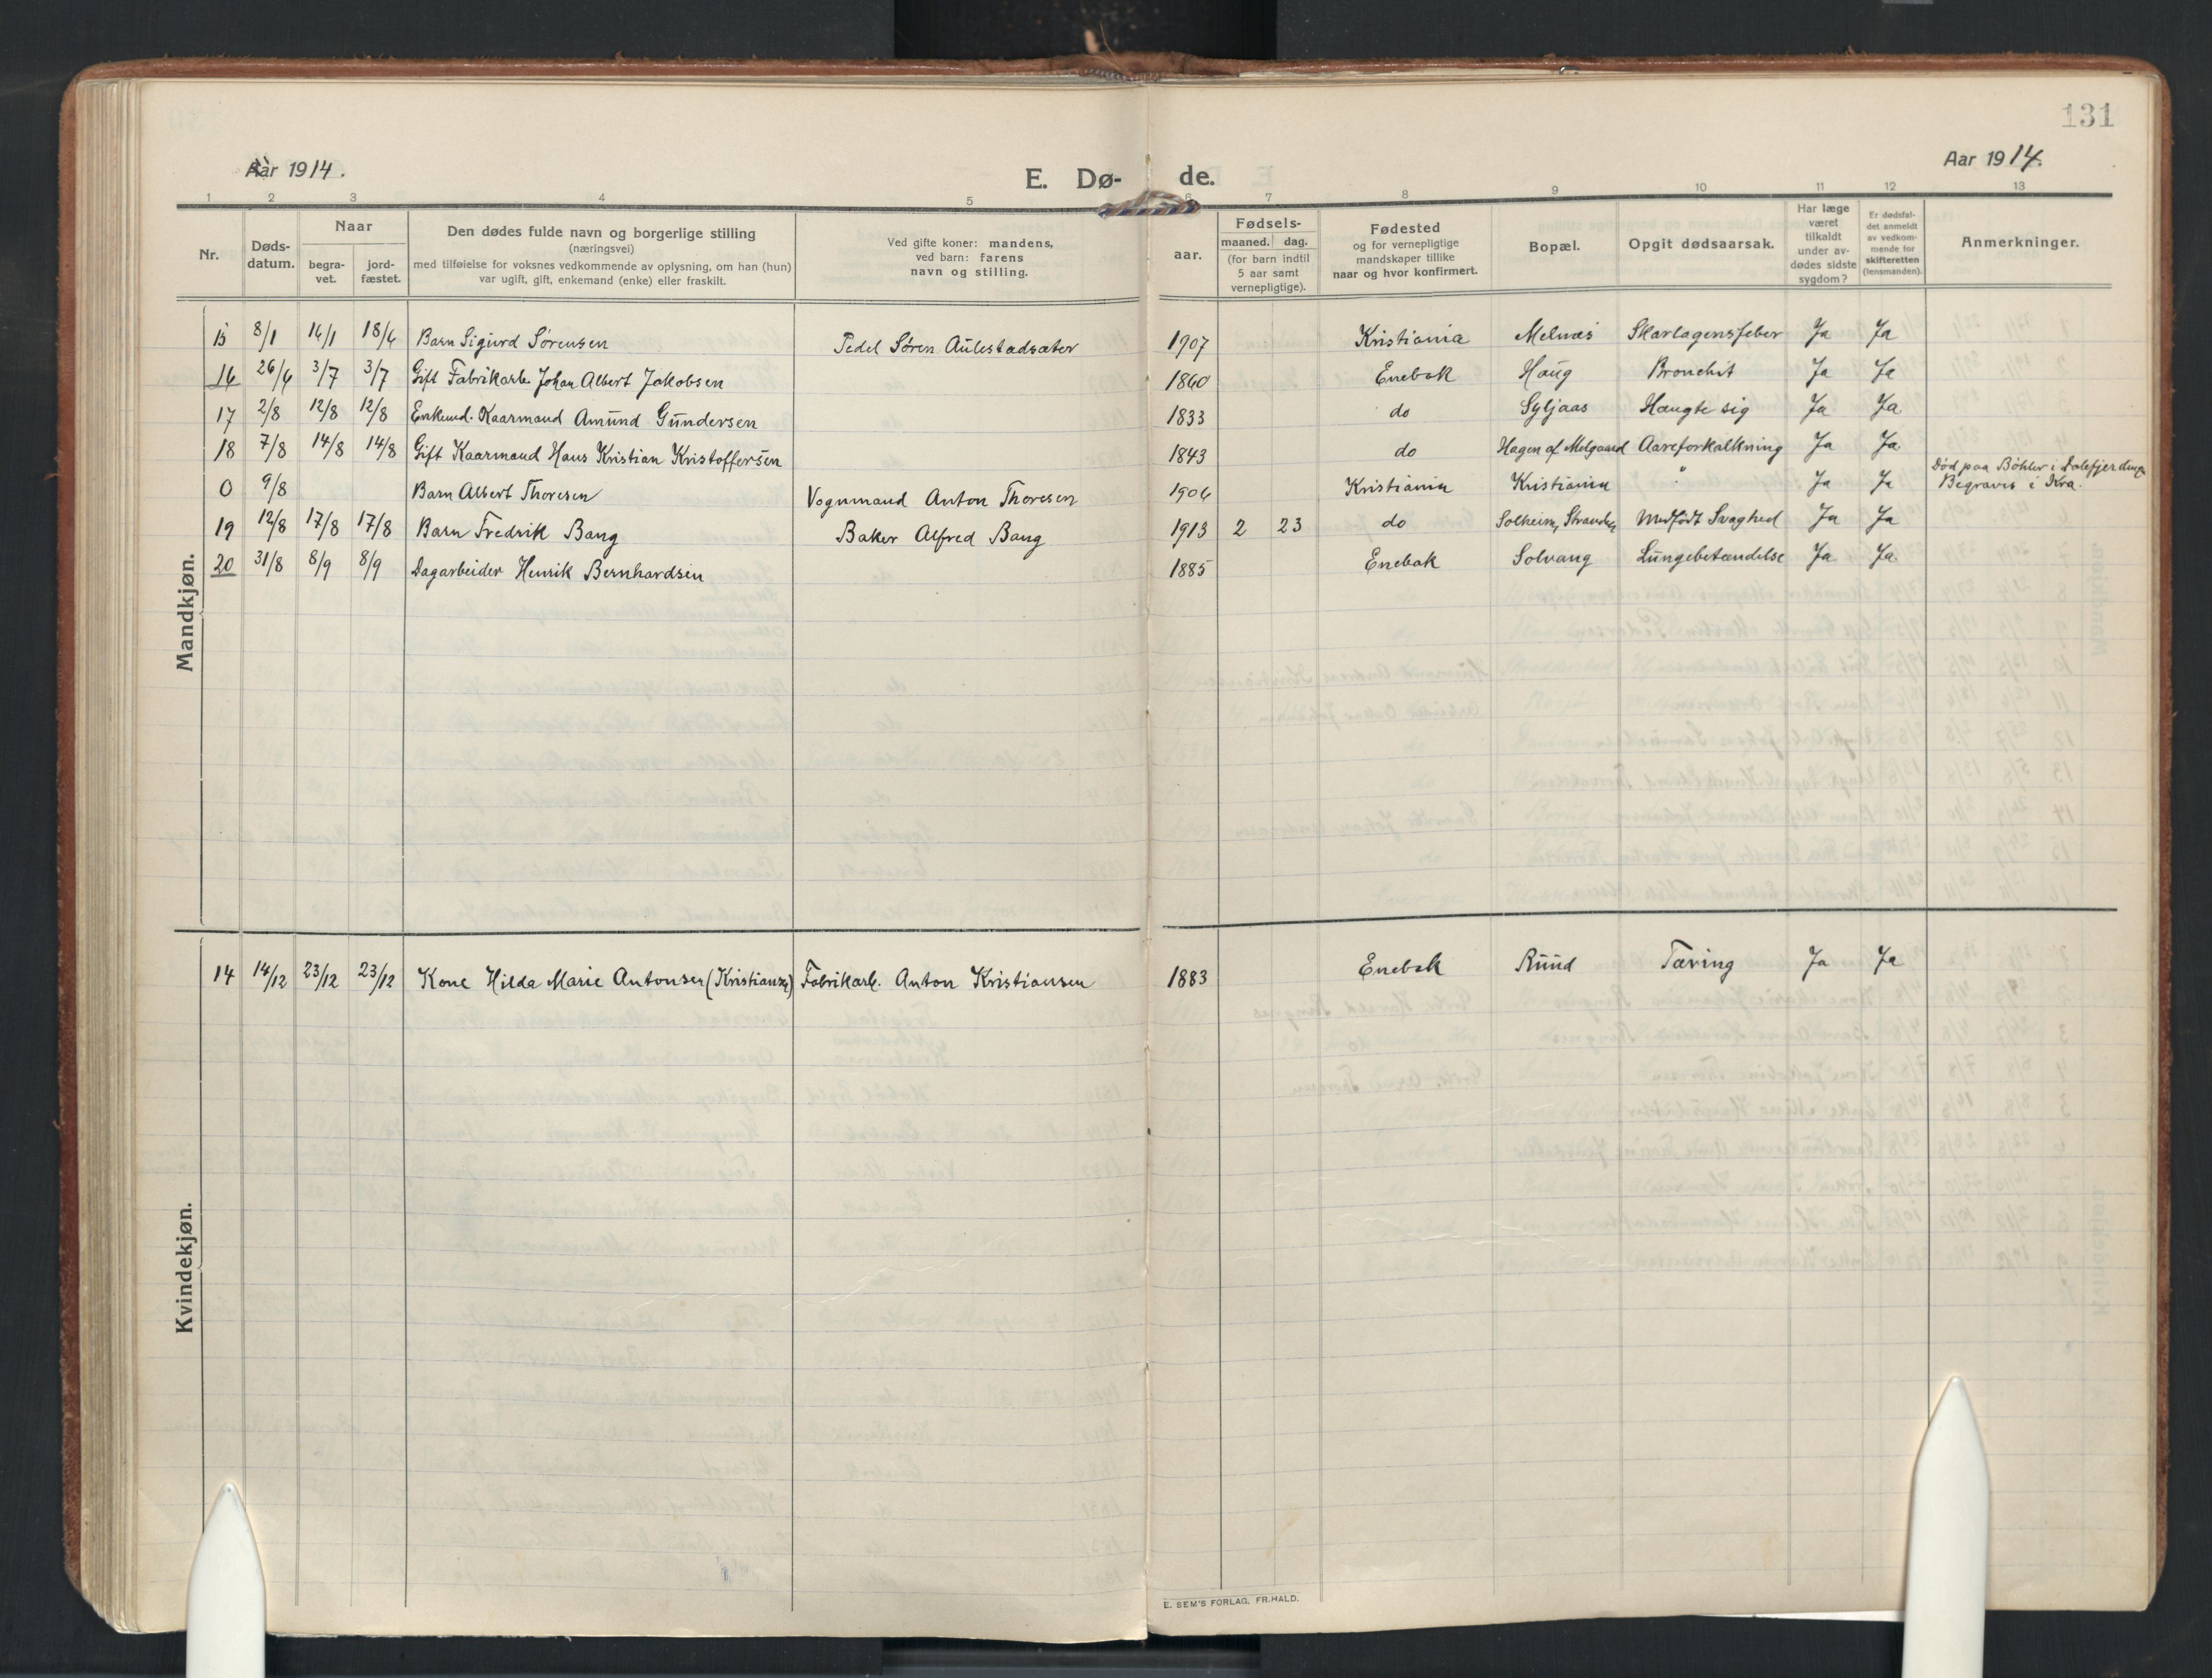 131
Aar 1914.
Aar 1914.
E. Dø- de.
1 2 3 4 5 6 7 8 9 10 11 12 13
Nr.
Døds-
datum.
Naar
begra-
vet.
jord-
fæstet.
Den dødes fulde navn og borgerlige stilling
(næringsvei)
med tilføielse for voksnes vedkommende av oplysning, om han (hun)
var ugift, gift, enkemand (enke) eller fraskilt.
Ved gifte koner: mandens,
ved barn: farens
navn og stilling.
aar.
Fødsels-
maaned. dag.
(for barn indtil
5 aar samt
vernepligtige).
Fødested
og for vernepligtige
mandskaper tillike
naar og hvor konfirmert.
Bopæl.
Opgit dødsaarsak.
Har læge
været
tilkaldt
under av-
dødes sidste
sygdom?
Er dødsfal-
det anmeldt
av vedkom-
mende for
skifteretten
(lensmanden).
Anmerkninger.
Mandkjøn.
15 8/1 14/1 18/4 Barn Sigurd Sørensen Pedel Søren Aulestadsæter 1907 Kristiania Melnæs Skarlagensfeber Ja Ja
16 26/6 3/7 3/7 Gift Fabrikarb. Johan Albert Jakobsen 1860 Enebak Haug Bronchit Ja Ja
17 2/8 12/8 12/8 Enkemd. Kaarmand Amund Gundersen 1833 do Syljaas Hængte sig Ja Ja
18 7/8 14/8 14/8 Gift Kaarmand Hans Kristian Kristoffersen 1843 do Hagen af Melgaard Aareforkalkning Ja Ja
0 9/8 Barn Albert Thoresen Vognmand Anton Thoresen 1906 Kristiania Kristiania " Ja Ja Død paa Bøhler i Dalefjerdingen
Begraves i Kra.
19 12/8 17/8 17/8 Barn Fredrik Bang Baker Alfred Bang 1913 2 23 do Solheim, Stranden Medfødt Svaghed Ja Ja
20 31/8 8/9 8/9 Dagarbeider Henrik Bernhardsen 1885 Enebak Solvang Lungebetændelse Ja Ja
Kvindekjøn.
14 14/12 23/12 23/12 Kone Hilda Marie Antonsen (Kristiansen) Fabrikarb. Anton Kristiansen 1883 Enebak Ruud Tæring Ja Ja
E. SEM'S FORLAG, FR.HALD.